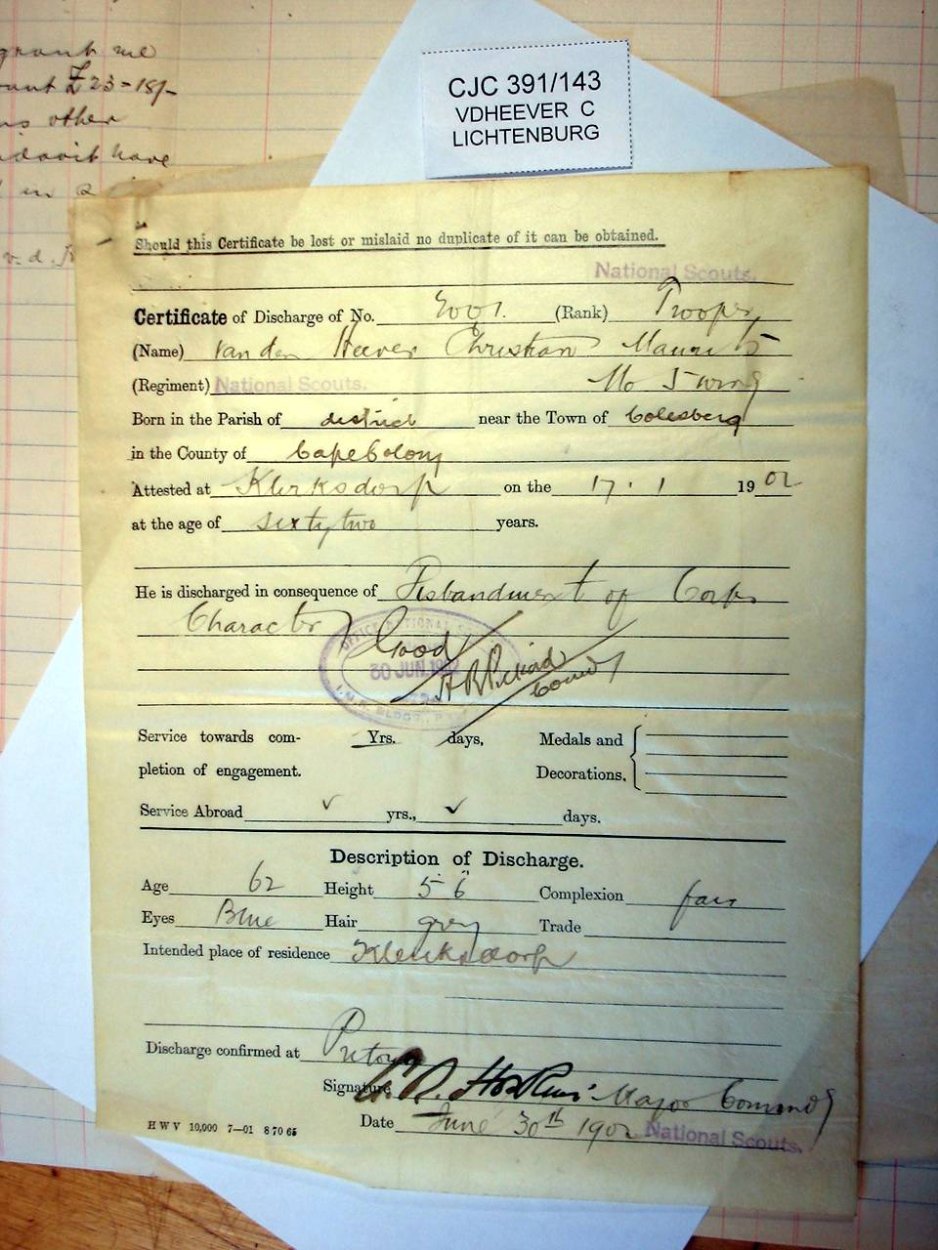 grant me
£23-18/-
other
have
in a
v. d.
CJC 391/143
VDHEEVER C
LICHTENBURG
Should this Certificate be lost or mislaid no duplicate of it can be obtained.
National Scouts.
Certificate of Discharge of No. (Rank) Trooper
(Name) Van den Heever Christian Maurits
(Regiment) National Scouts. No 5 wing
Born in the Parish of district near the Town of Colesberg
in the County of Cape Colony
Attested at Klerksdorp on the 17. 1 1902
at the age of sixty two years.
He is discharged in consequence of Disbandment of Corps
Character Good
30 JUN 1902
Service towards com- Yrs. days, Medals and
pletion of engagement. Decorations.
Service Abroad ✓ yrs., ✓ days.
Description of Discharge.
Age 62 Height 5' 6" Complexion fair
Eyes Blue Hair grey Trade
Intended place of residence Klerksdorp
Discharge confirmed at Pretoria
Signature Major Commdg
Date June 30th 1902 National Scouts.
H W V 10,000 7—01 8 70 65